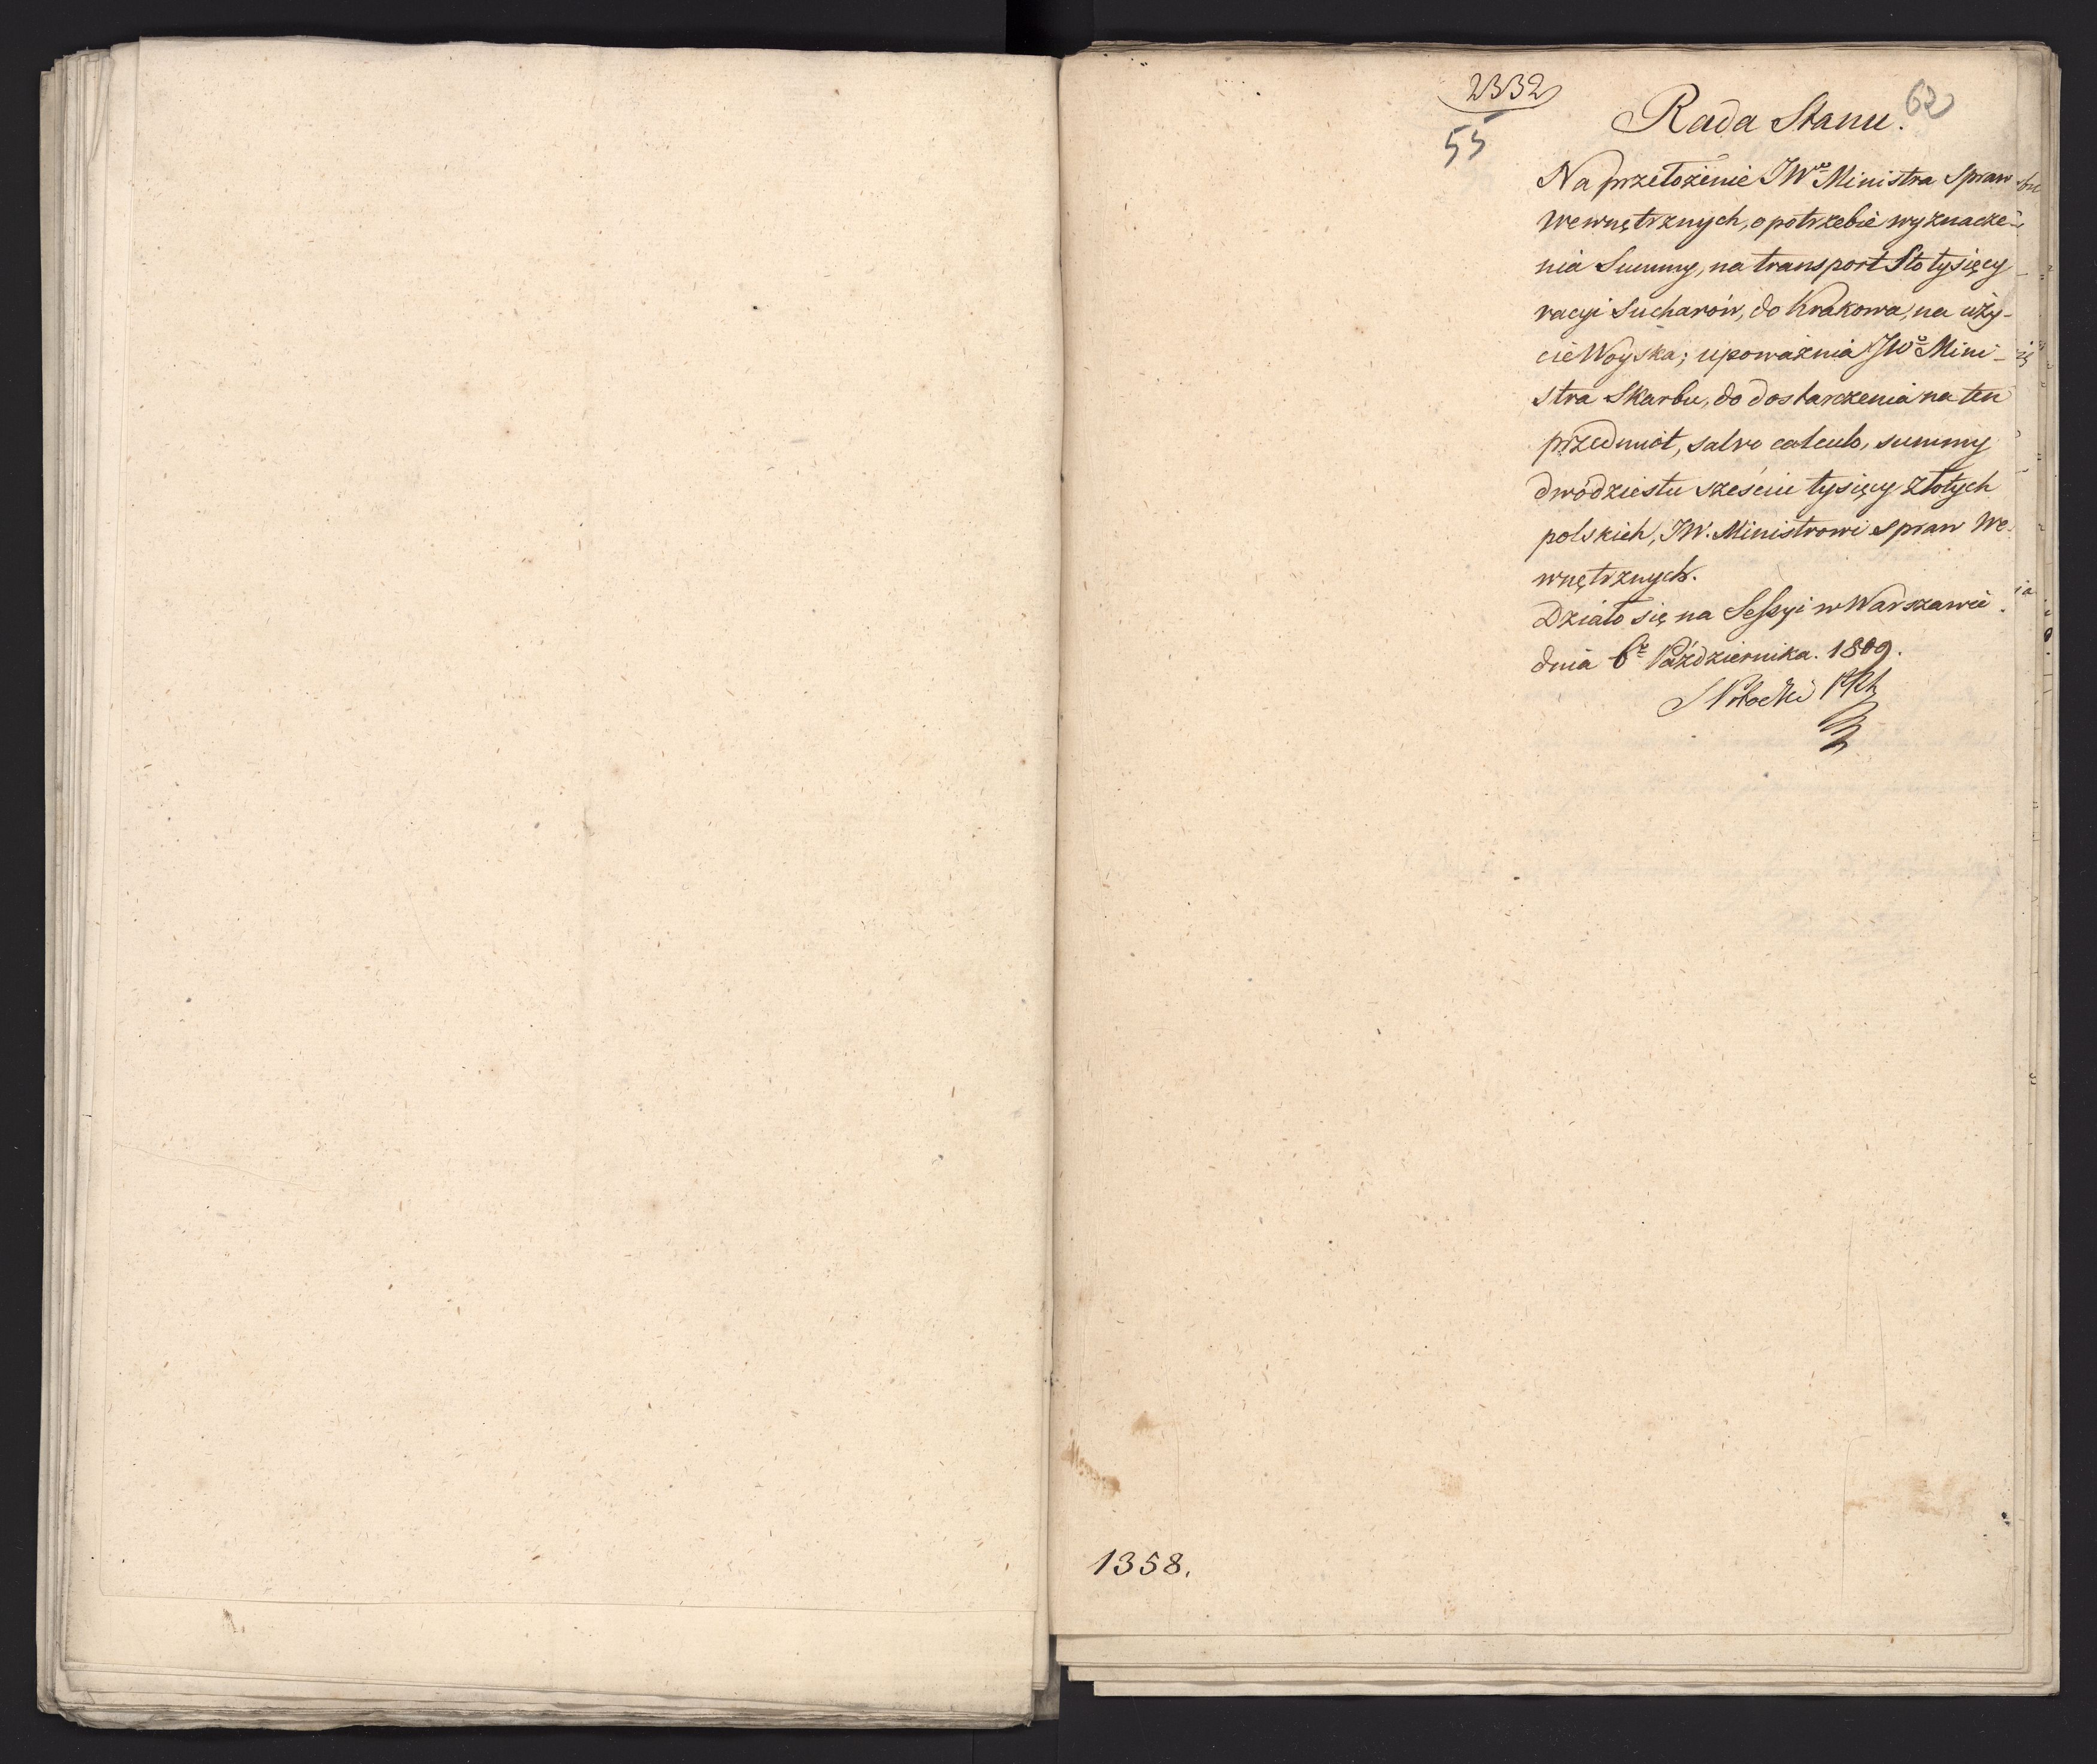 2332
55
62
Rada Stanu.
Na przełożenie JWo Ministra Spraw
Wewnętrznych, o potrzebie wyznacze-
nia Summy, na transport Sto tysięcy
racyi Sucharów, do Krakowa, na uży-
cie Woyska; upoważnia JWo Mini-
stra Skarbu, do dostarczenia na ten
przedmiot, salvo calculo, summy
dwódziestu sześciu tysięcy złotych
polskich, JW. Ministrowi Spraw We-
wnętrznych.
Działo się na Sessyi w Warszawie
dnia 6o Października. 1809.
S Potocki
1358.